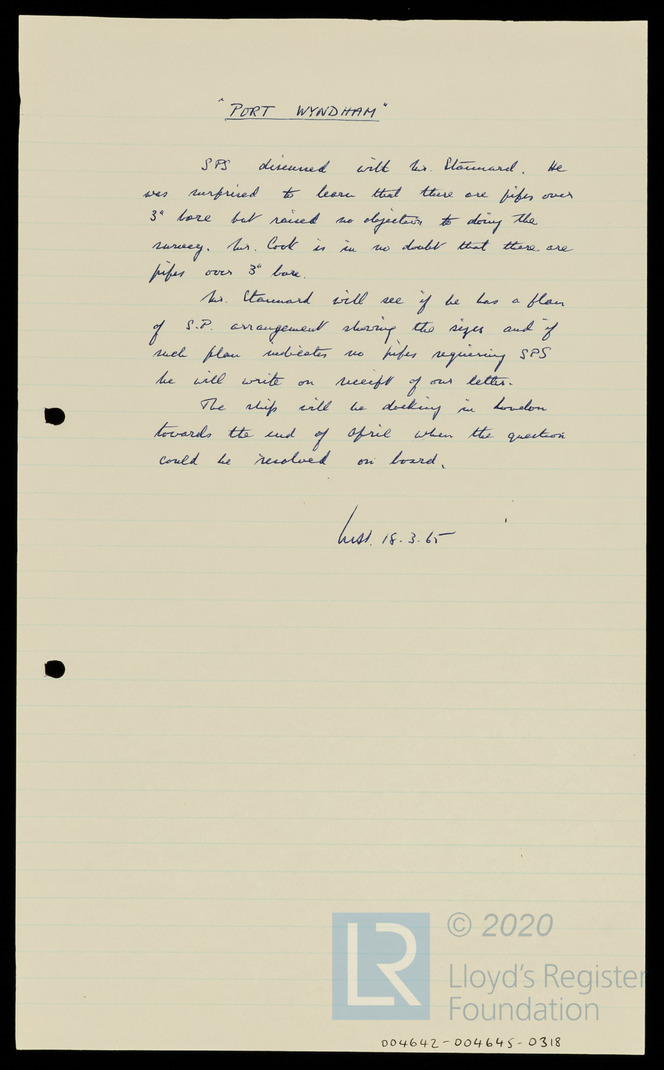 "PORT WYNDHAM"
SPS discussed with Mr. Stannard. He
was surprised to learn that there are pipes over
3" bore but raised no objection to doing the
survey. Mr. Cook is in no doubt that there are
pipes over 3" bore.
Mr. Stannard will see if he has a plan
of S.P. arrangement showing the sizes and if
such plan indicates no pipes requiring SPS
he will write on receipt of our letter.
The ship will be docking in London
towards the end of April when the question
could be resolved on board.
18.3.65
LR
© 2020
Lloyd's Register
Foundation
004642-004645-0318